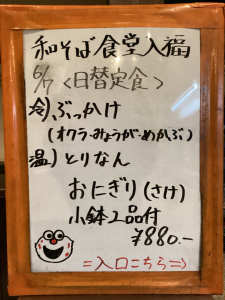 和そば食堂入福
6/7 <日替定食>
冷)ぶっかけ
(オクラ・みょうが・めかぶ)
温)とりなん
おにぎり(さけ)
小鉢1品付
¥880.-
=入口こちら=>